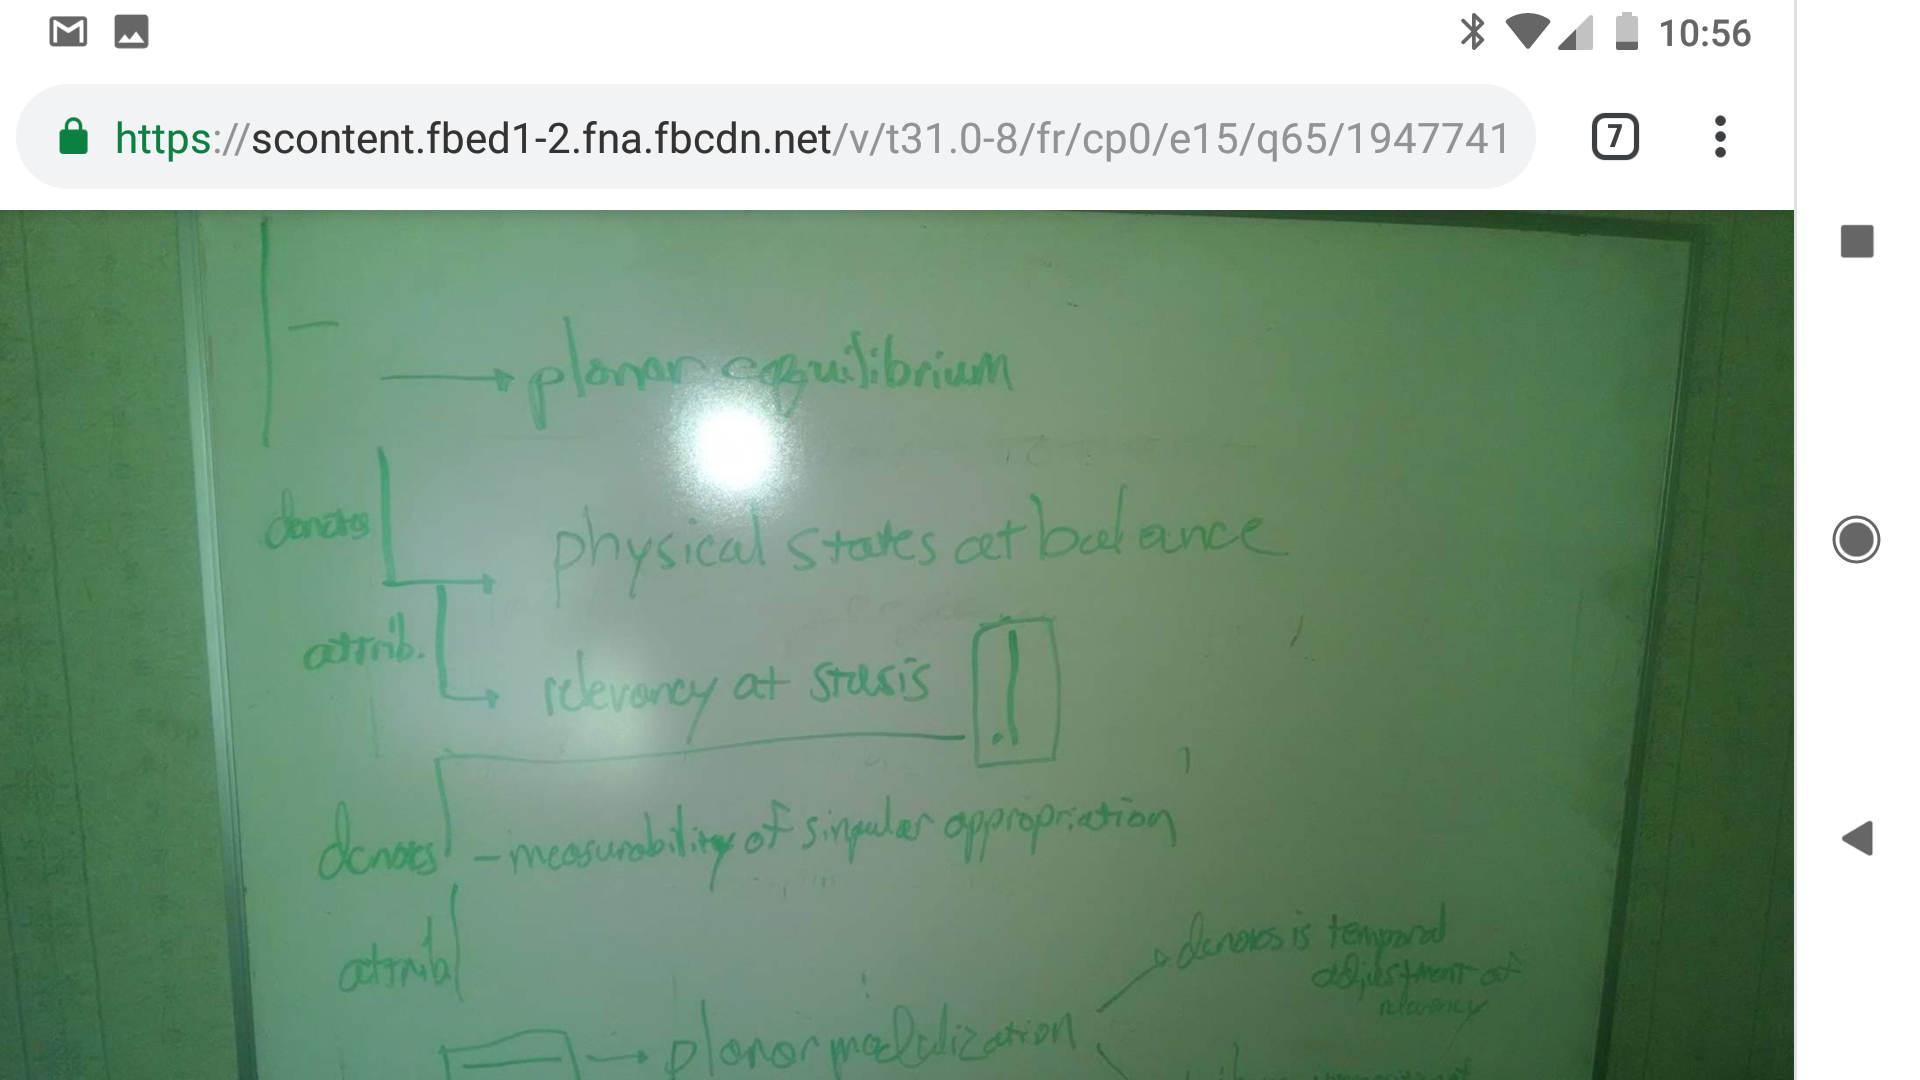 10:56
https://scontent.fbed1-2.fna.fbcdn.net/v/t31.0-8/fr/cp0/e15/q65/1947741
7
→ planar equilibrium
denotes
physical states at balance
attrib.
relevancy at stasis
denotes - measurability of singular appropriation
attrib
denotes is temporal
adjustment at
relevancy
→ planar modulization